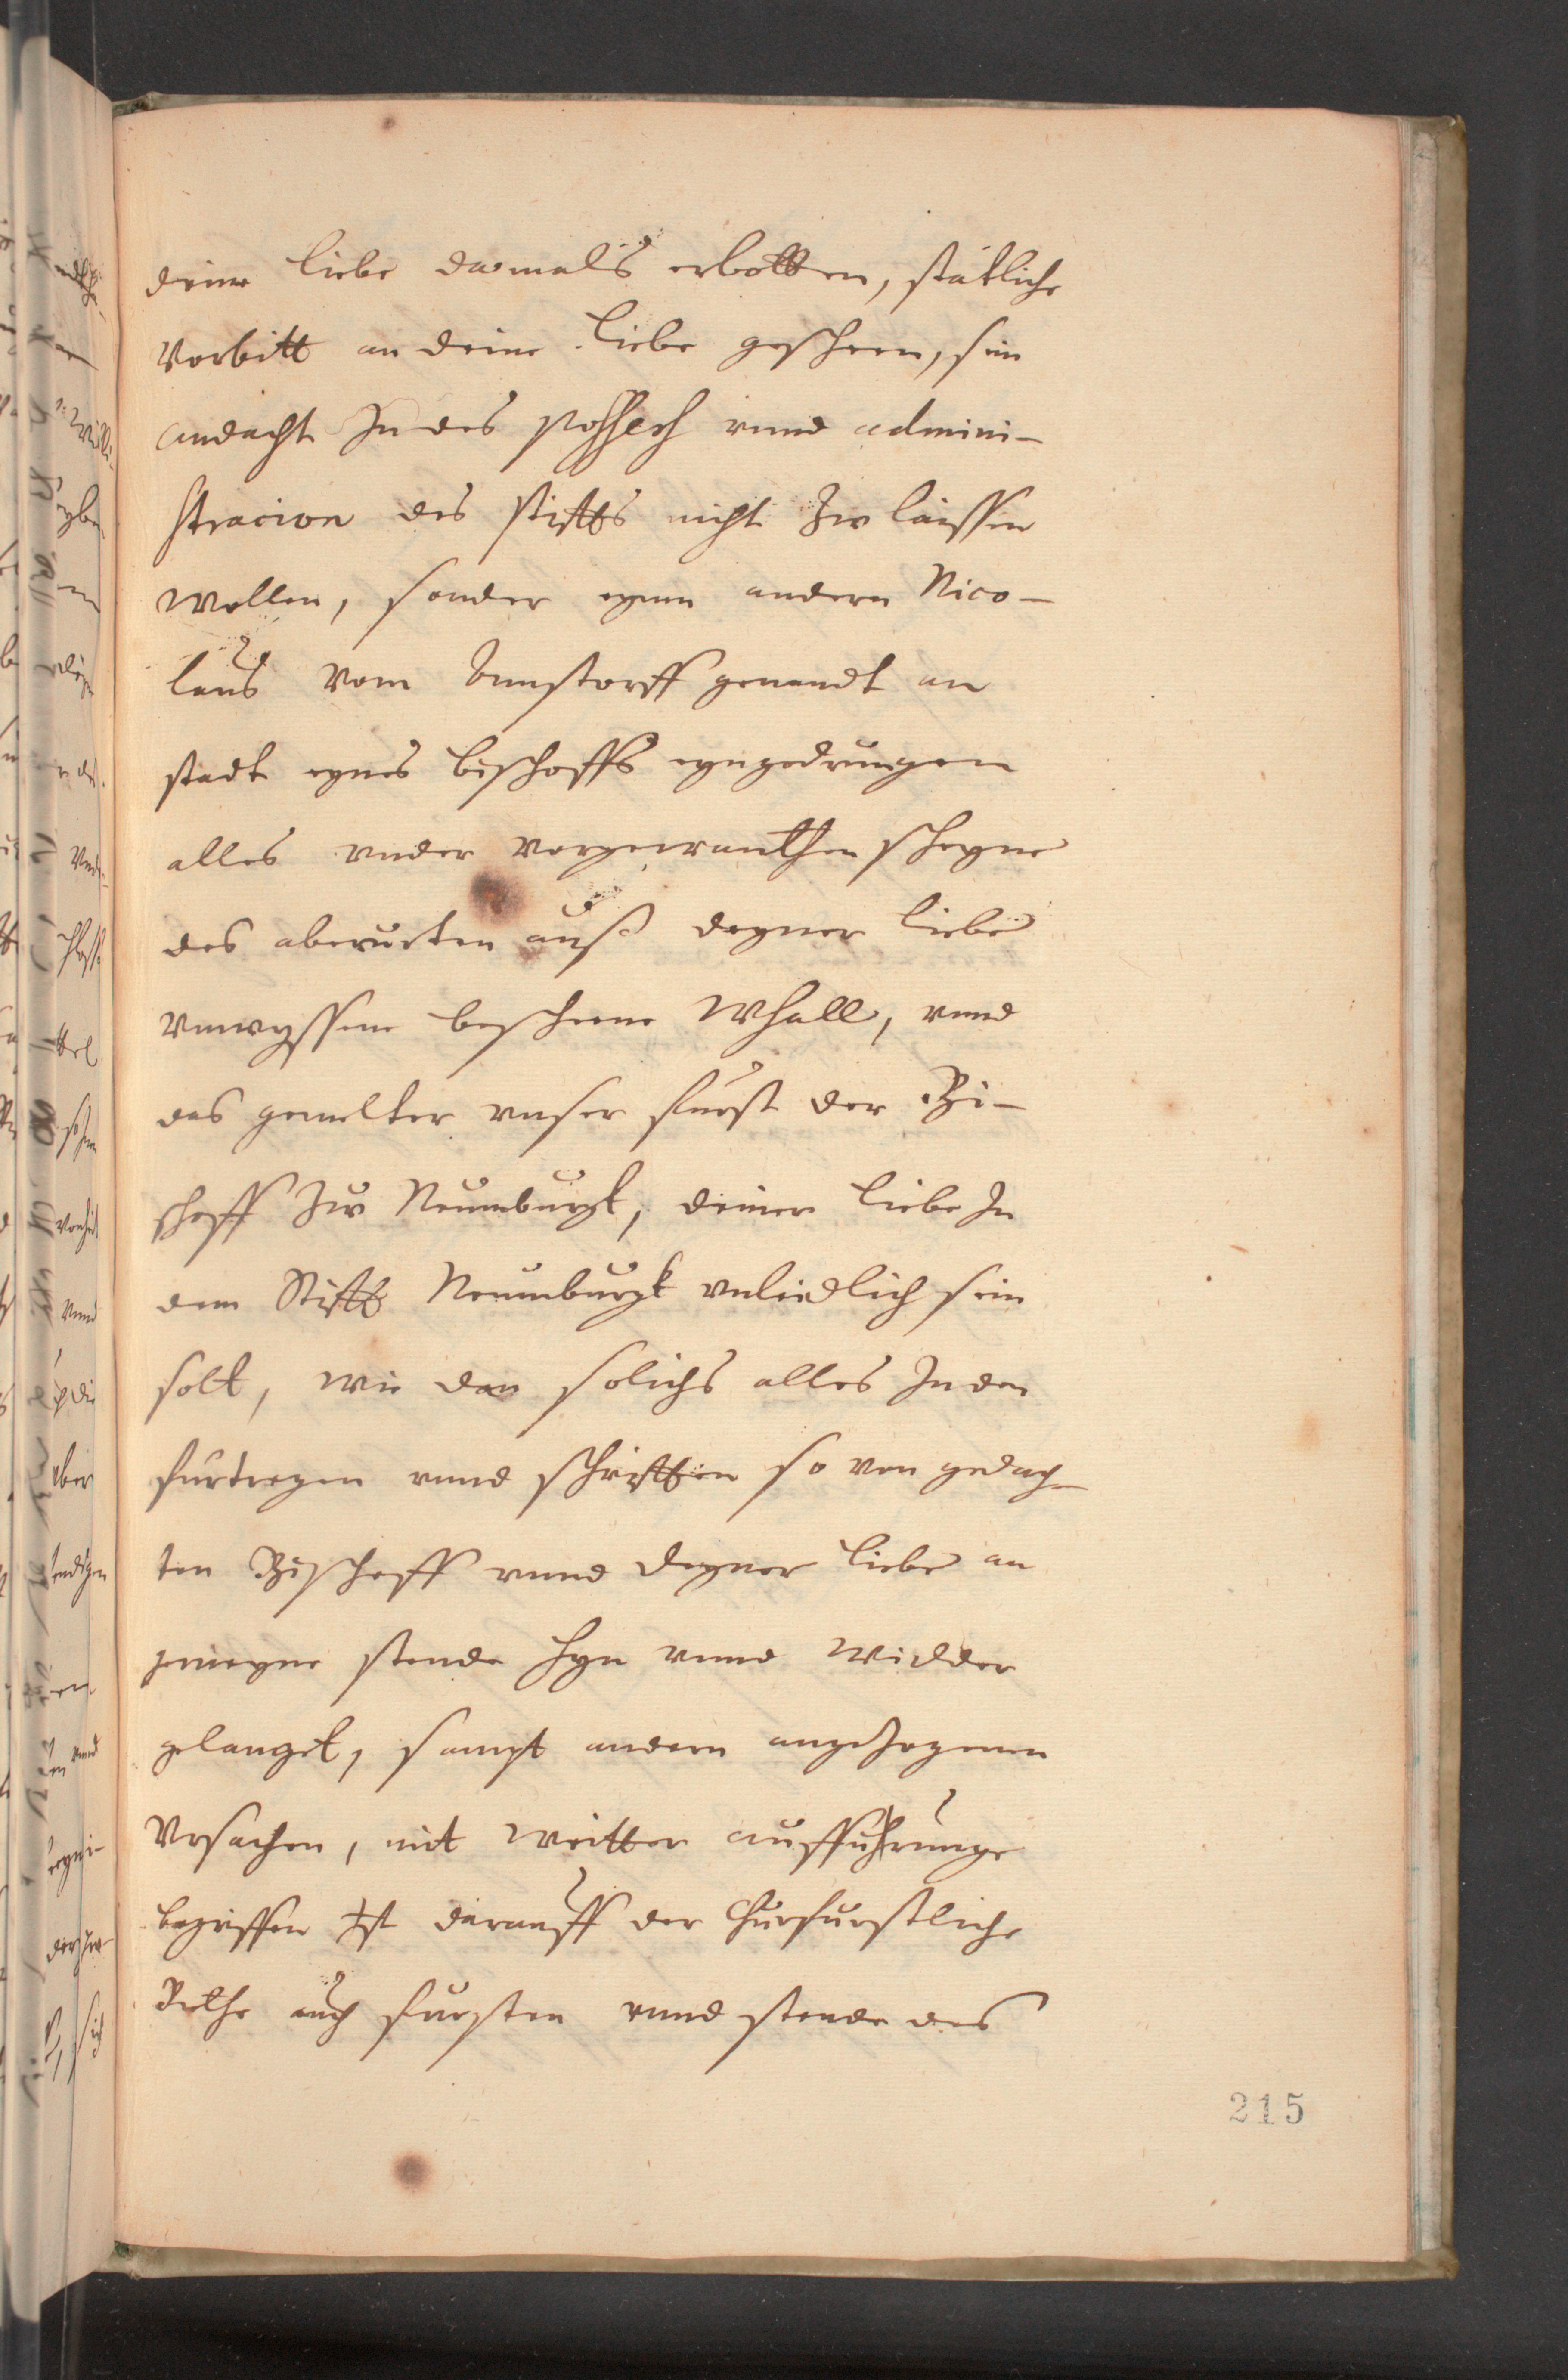 deine Liebe damals erbotten, statliche
Vorbitt an deine Liebe gescheen, sein
andacht In des possess vnnd admini-
stracion des stiffts nicht Zw laissen
wollen, sonder eynen andern Nico-
laus vom Amsstorff genandt an
stadt eynes bischoffs eyngedrungen
alles vnder vorgewanthen scheyne
des auß deyner Liebe
vnwyssen bescheene Whall, vnnd
das gemelter vnser furst der Bi-
schoff Zw Neumburgk, deiner Liebe In
dem Stifft Neumburgk vnliedlich sein
solt, wie dan solichs alles In den
furtregen vnnd schrifften so von gedach-
ten Bischoff vnnd deyner Liebe an
gemeyne stende hyn vnnd widder
gelanget, sampt andern angezogenen
Vrsachen, mit weitter ausffuhrunge
begriffen Ist darauff der Churfurstliche
Rethe auch fursten vnnd stende des
215